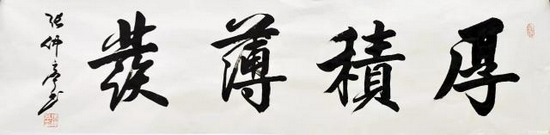 厚積薄發
張仲亭书